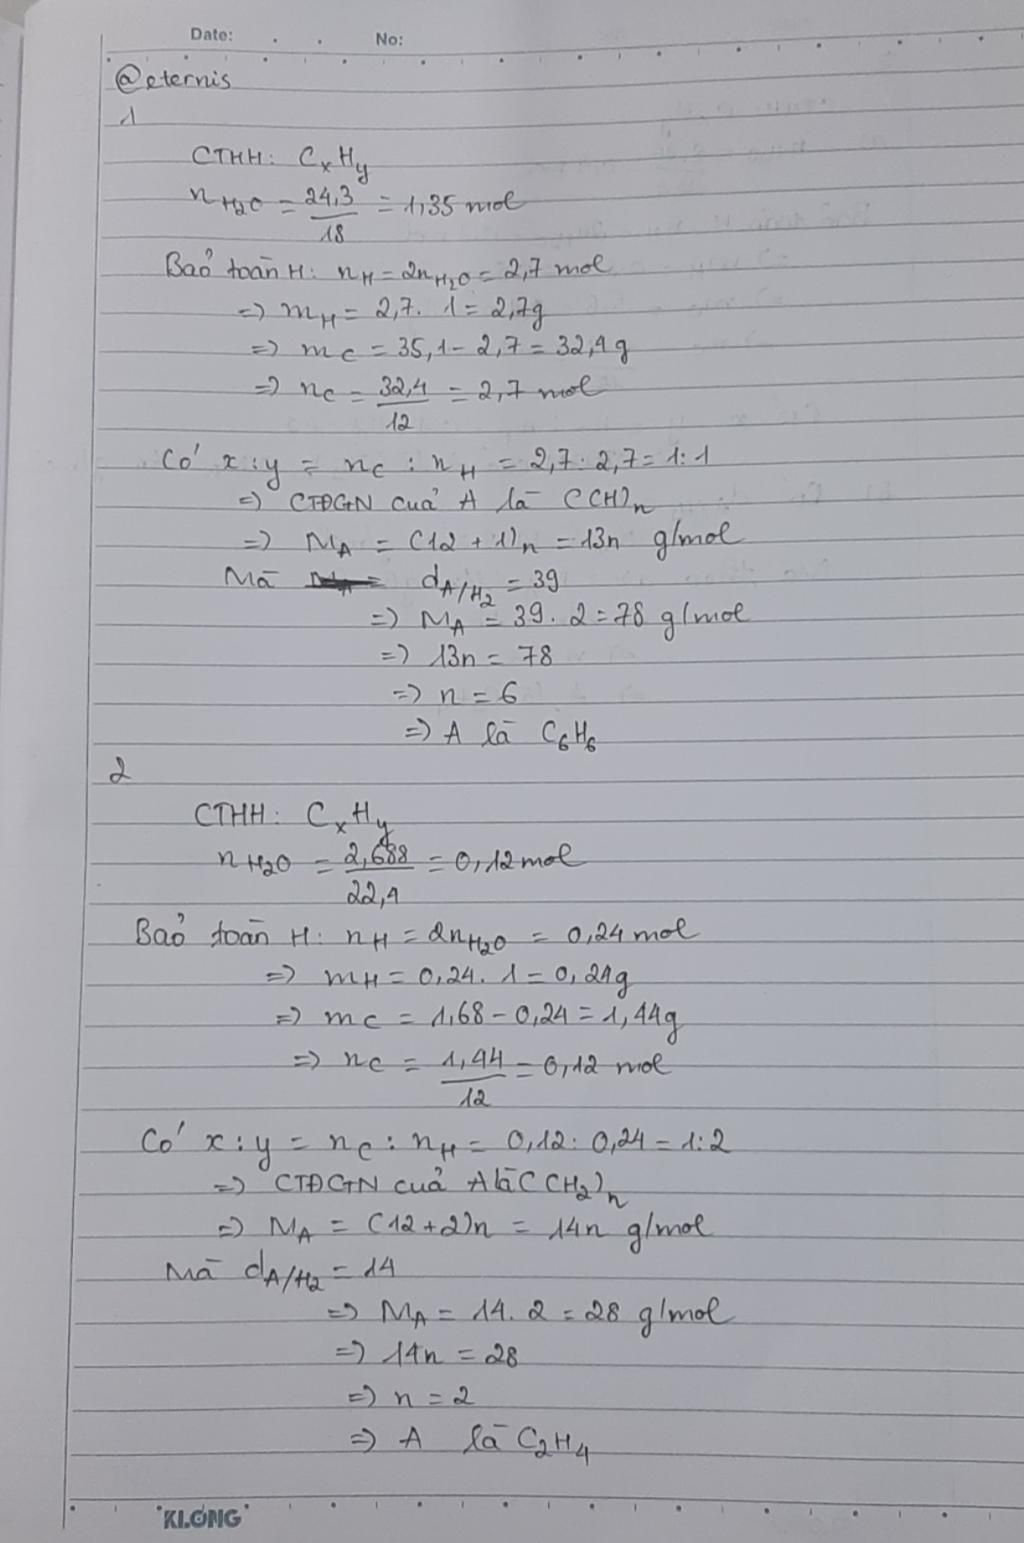 Date: . . No:
@eternis
1
CTHH: CxHy
nH2O = 24,3/18 = 1,35 mol
Bảo toàn H: nH = 2nH2O = 2,7 mol
=> mH = 2,7. 1 = 2,7g
=> mC = 35,1 - 2,7 = 32,4g
=> nC = 32,4/12 = 2,7 mol
Có x:y = nC : nH = 2,7 : 2,7 = 1:1
=> CTĐGN của A là (CH)n
=> MA = (12 + 1)n = 13n g/mol
Mà dA/H2 = 39
=> MA = 39. 2 = 78 g/mol
=> 13n = 78
=> n = 6
=> A là C6H6
2
CTHH: CxHy
nH2O = 2,688/22,4 = 0,12 mol
Bảo toàn H: nH = 2nH2O = 0,24 mol
=> mH = 0,24. 1 = 0,24g
=> mC = 1,68 - 0,24 = 1,44g
=> nC = 1,44/12 = 0,12 mol
Có x:y = nC : nH = 0,12 : 0,24 = 1:2
=> CTĐGN của A là (CH2)n
=> MA = (12+2)n = 14n g/mol
Mà dA/H2 = 14
=> MA = 14. 2 = 28 g/mol
=> 14n = 28
=> n = 2
=> A là C2H4
KLONG